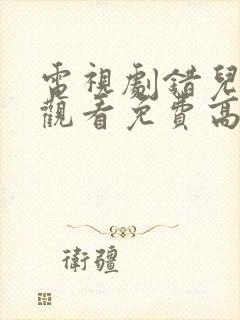 電視劇錯兒
觀看免費高
衛疆